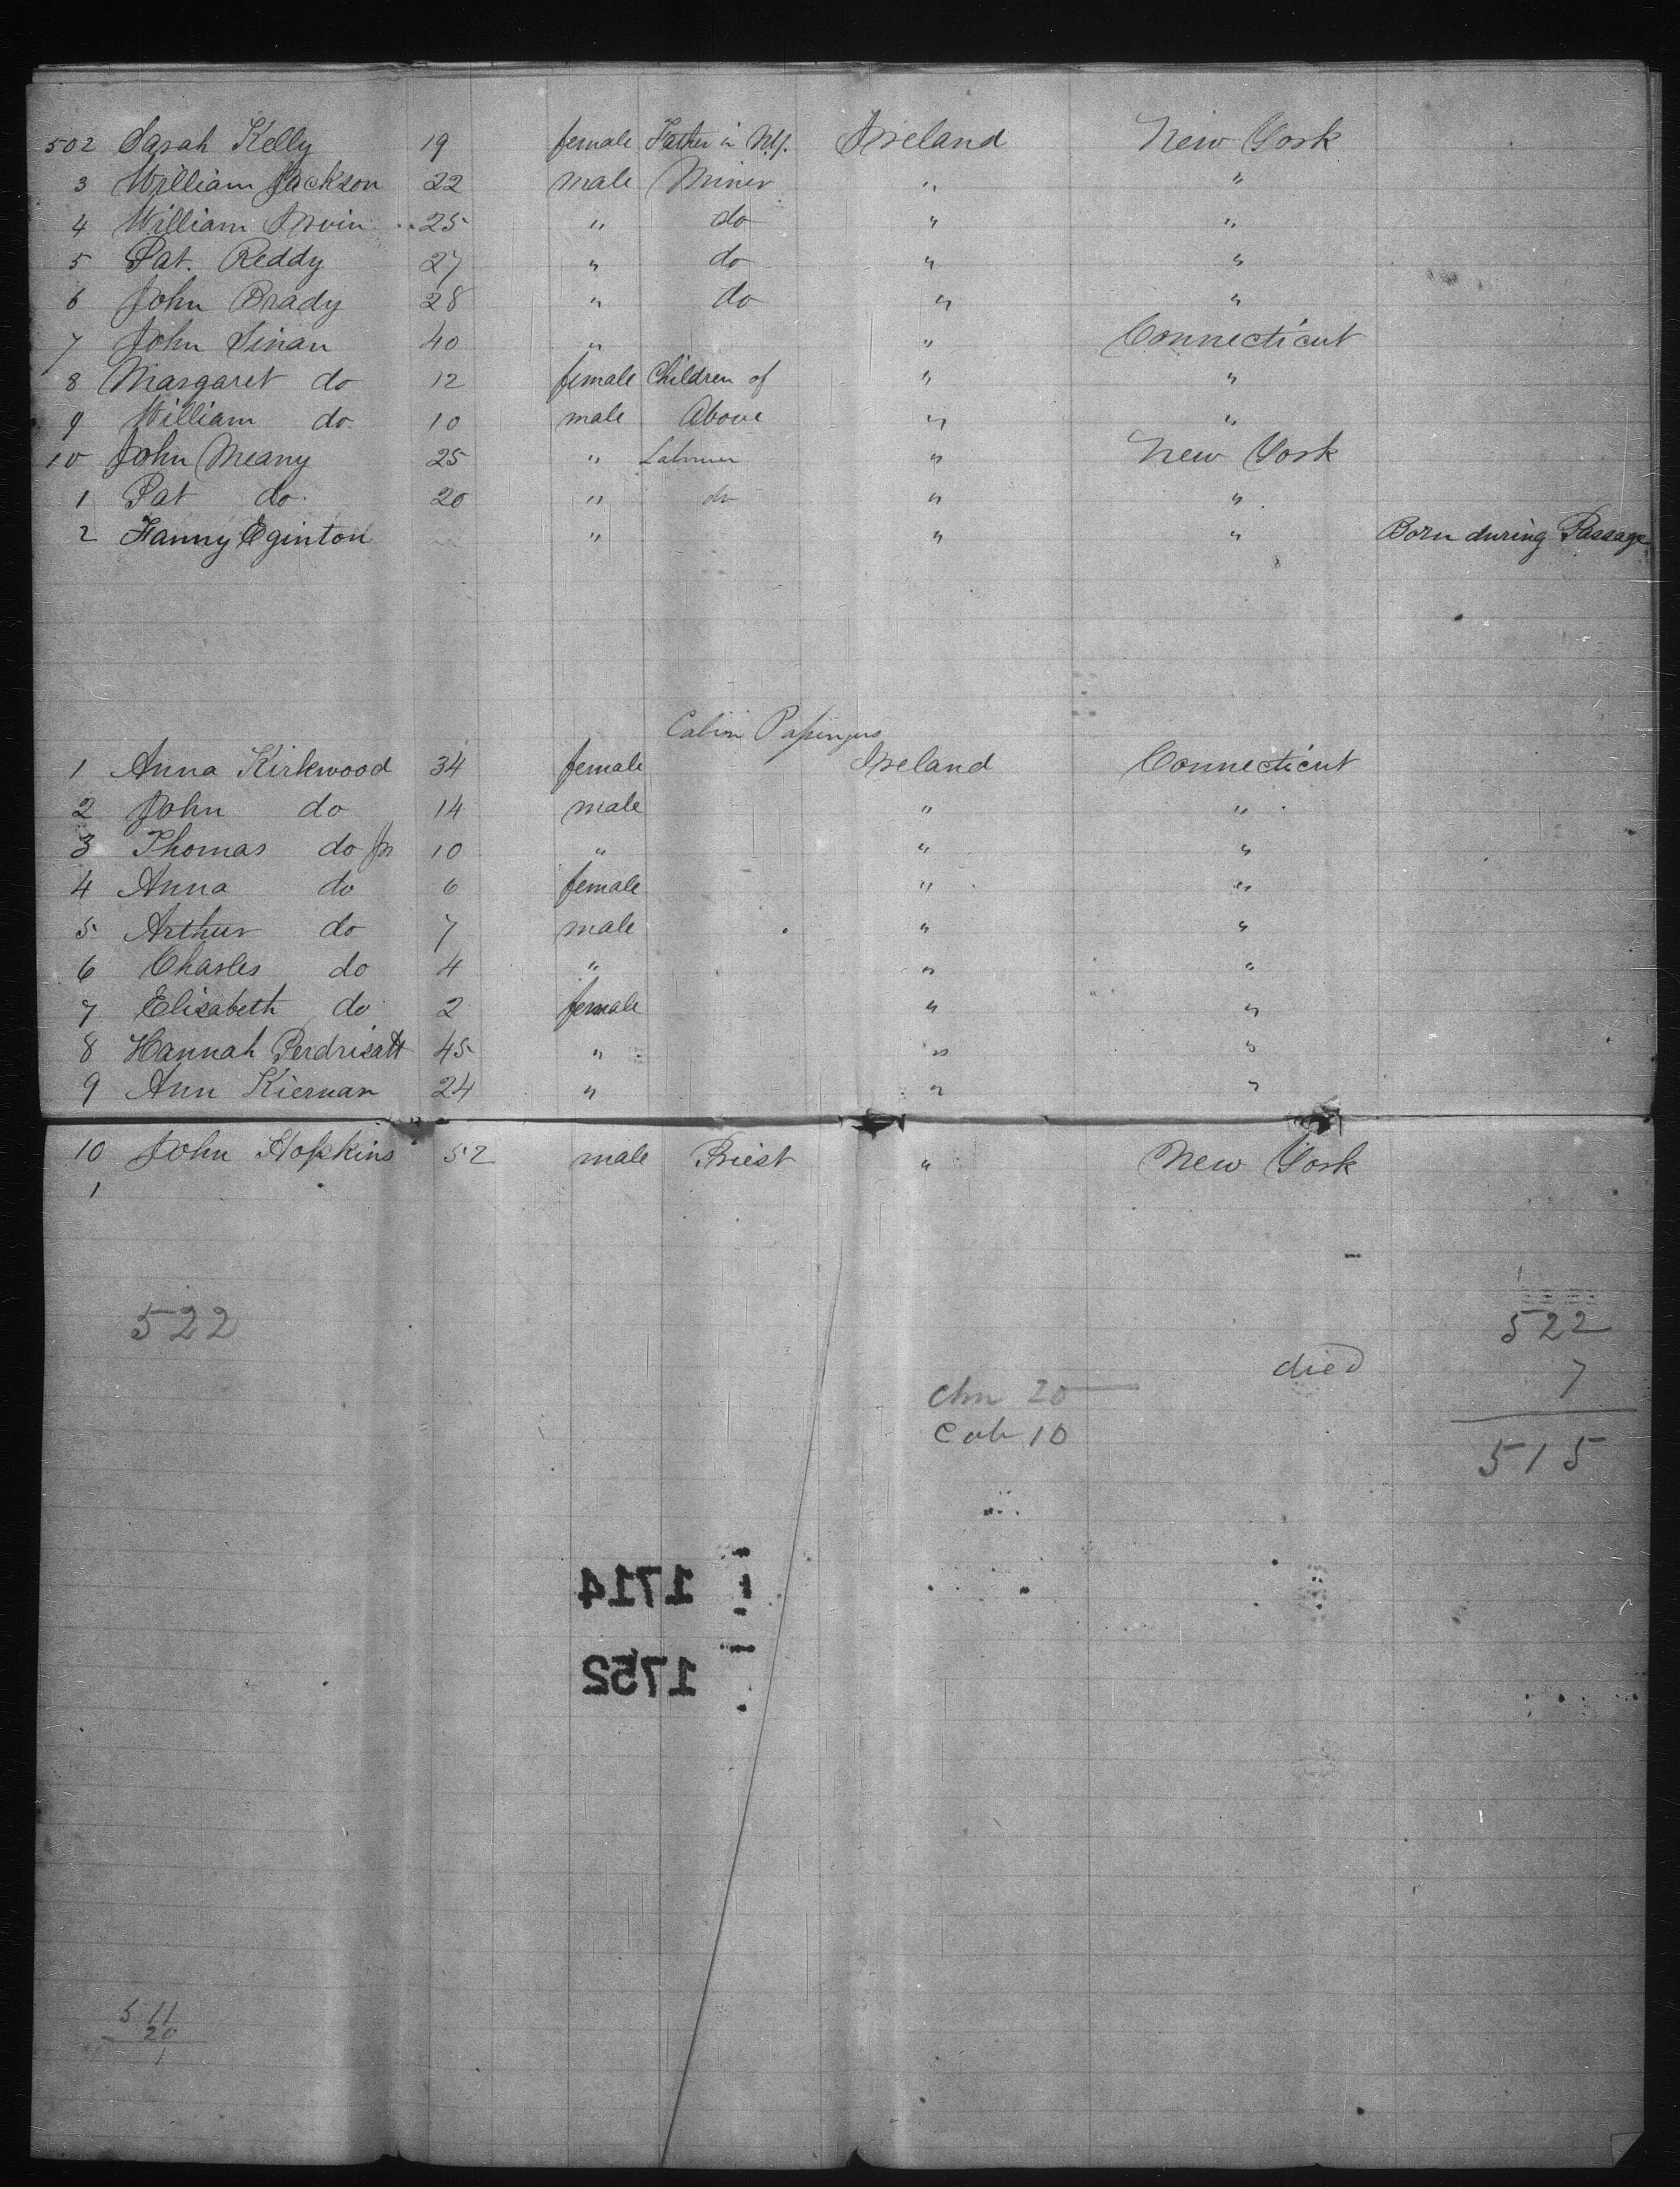 502 Sarah Kelly 19 female Father in N.Y. Ireland New York
3 William Jackson 22 male Miner " "
4 William Irvin 25 " do " "
5 Pat. Reddy 27 " do " "
6 John Brady 28 " do " "
7 John Sinan 40 " " Connecticut
8 Margaret do 12 female Children of " "
9 William do 10 male Above " "
10 John Meany 25 " Labourer " New York
1 Pat do 20 " do " "
2 Fanny Eginton " " " Born during Passage
Cabin Passengers
1 Anna Kirkwood 34 female Ireland Connecticut
2 John do 14 male " "
3 Thomas do 10 " " "
4 Anna do 6 female " "
5 Arthur do 7 male " "
6 Charles do 4 " " "
7 Elizabeth do 2 female " "
8 Hannah Perdrisatt 45 " " "
9 Ann Kiernan 24 " " "
10 John Hopkins 52 male Priest " New York
1
522 522
died 7
Chn 20
Cab 10
515
1714
1752
511
20
1